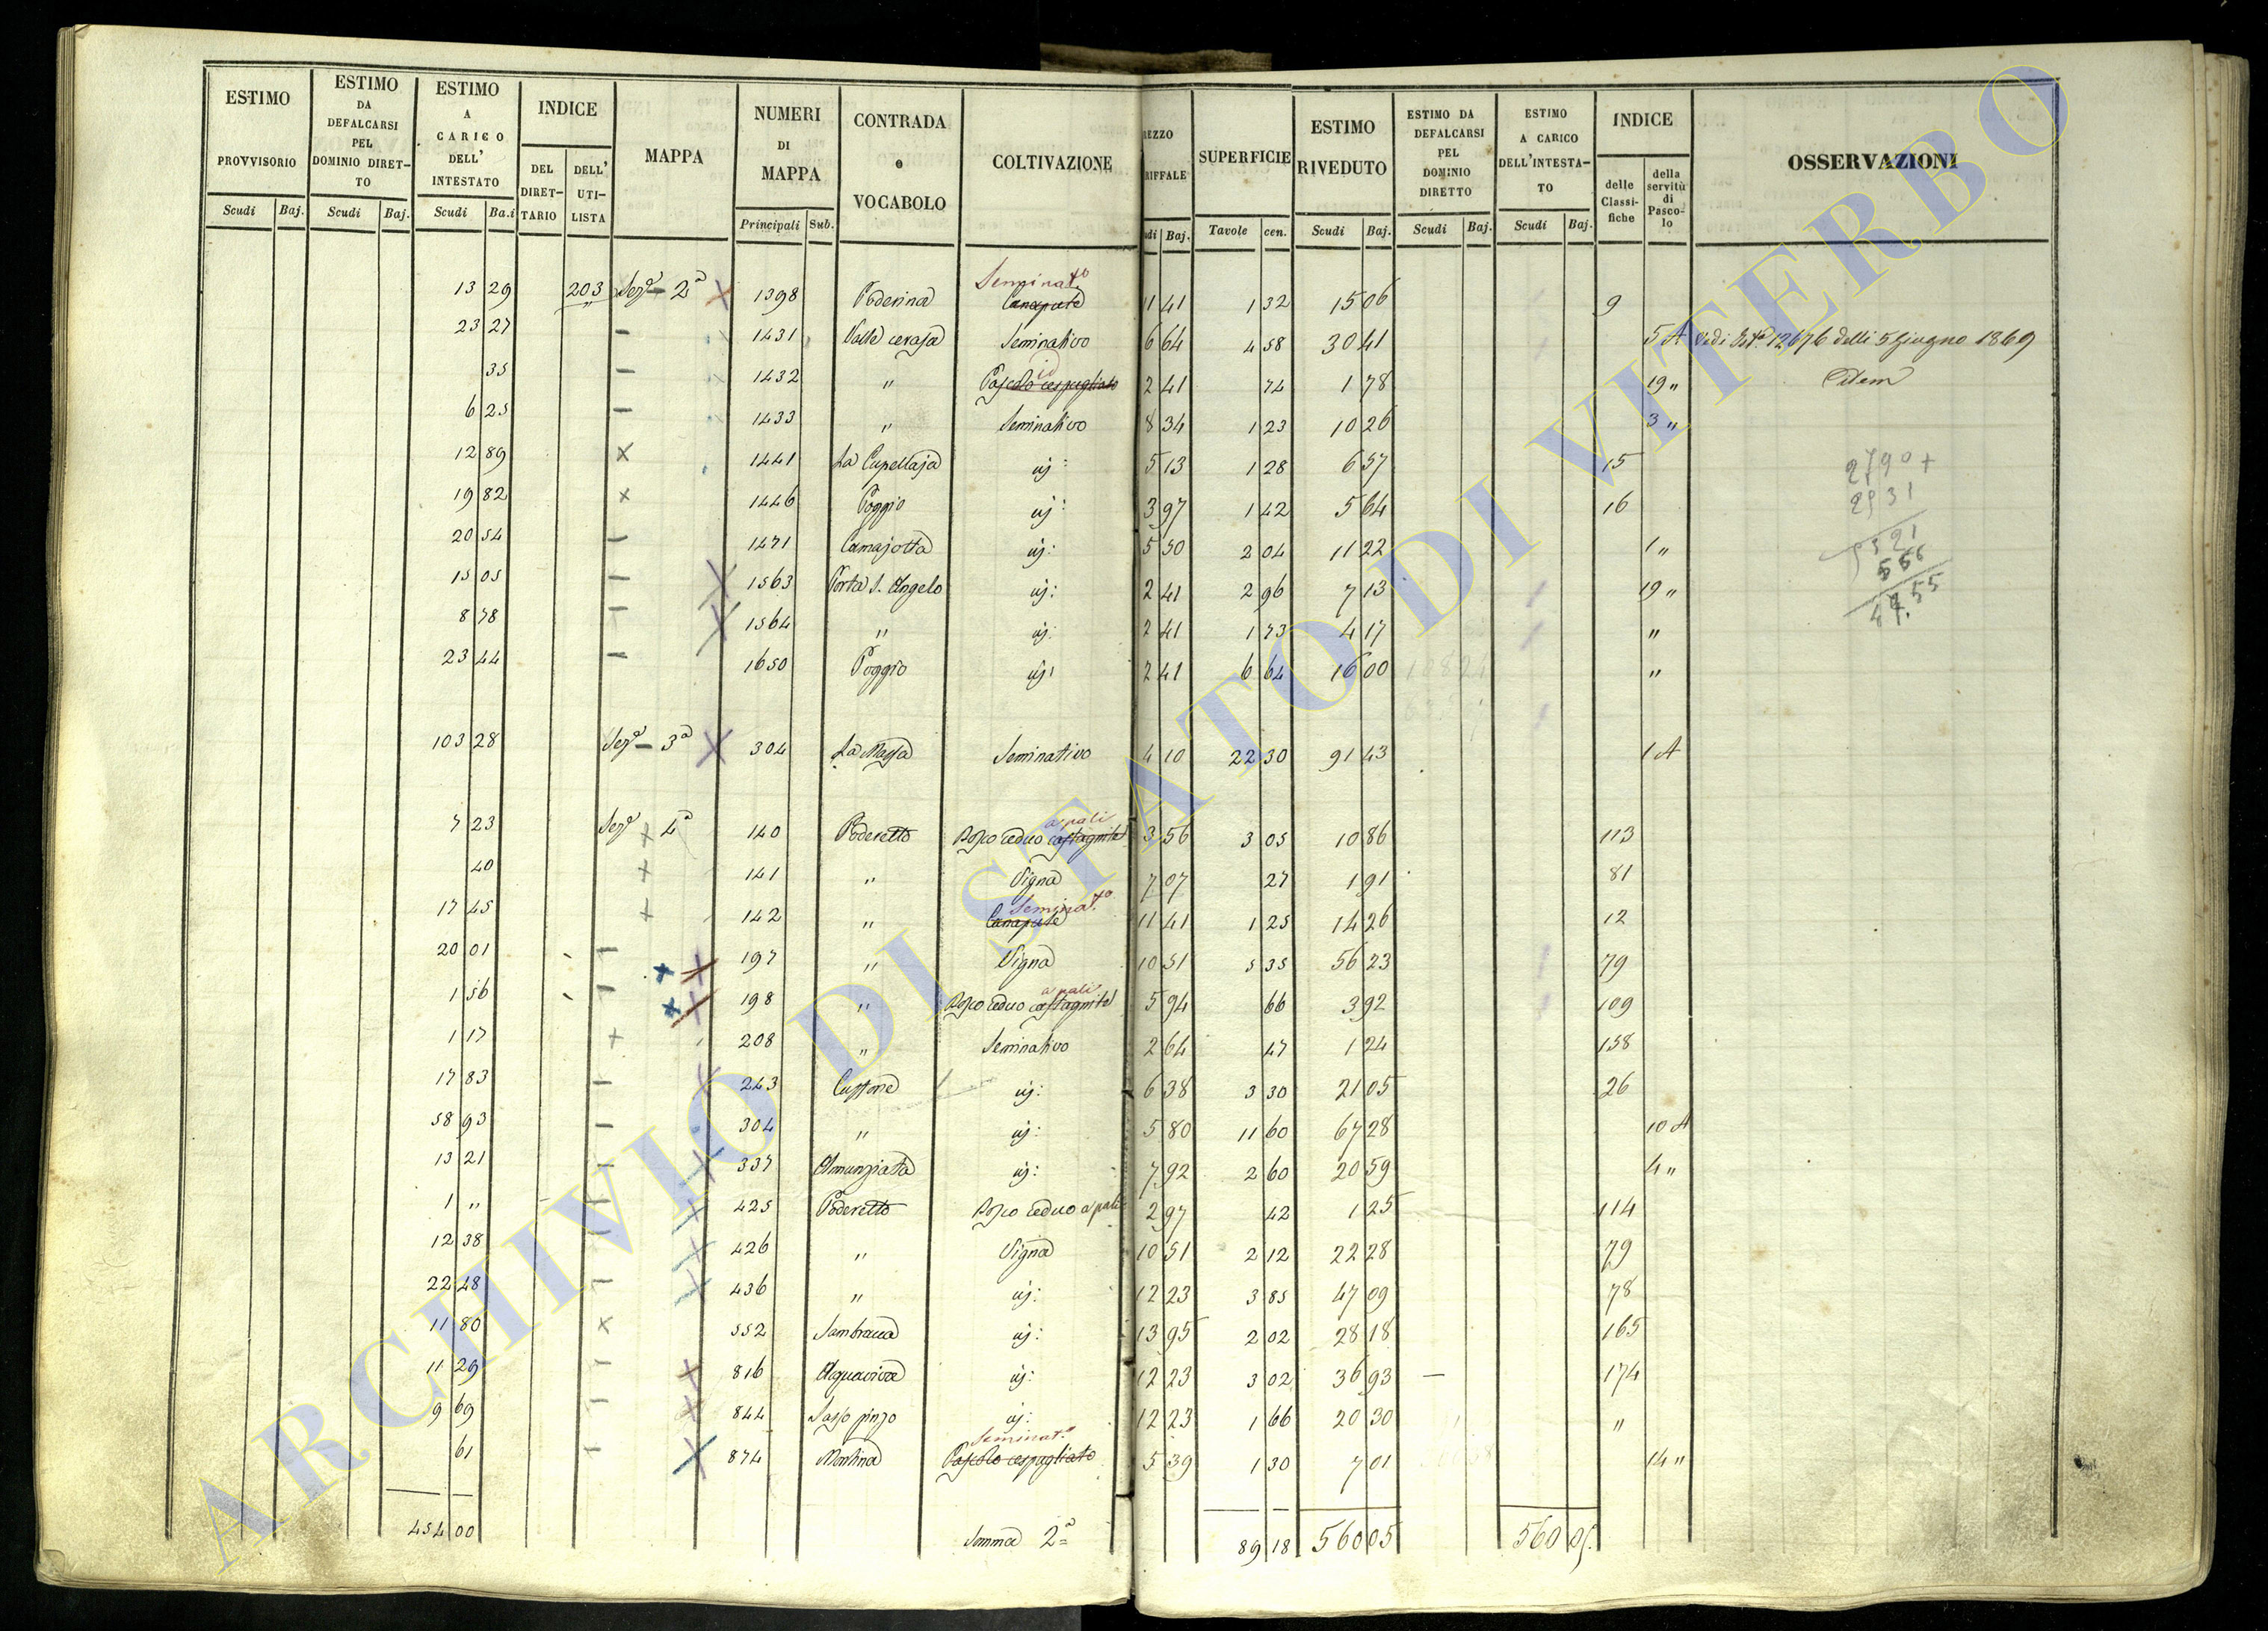 ESTIMO PROVVISORIO Scudi Baj.
ESTIMO DA DEFALCARSI PEL DOMINIO DIRETTO Scudi Baj.
ESTIMO A CARICO DELL' INTESTATO Scudi Ba.i
INDICE DEL DIRETTARIO DELL' UTILISTA
MAPPA
NUMERI DI MAPPA Principali Sub.
CONTRADA o VOCABOLO
COLTIVAZIONE
REZZO RIFFALE udi Baj.
SUPERFICIE Tavole cen.
ESTIMO RIVEDUTO Scudi Baj.
ESTIMO DA DEFALCARSI PEL DOMINIO DIRETTO Scudi Baj.
ESTIMO A CARICO DELL'INTESTATO Scudi Baj.
INDICE delle Classifiche della servitù di Pascolo
OSSERVAZIONI
13 29 203 Sezе 2a 1398 Poderina Canapule Seminat.o 11 41 1 32 15 06 9
23 27 — 1431 Valle cerasa Seminativo 6 64 4 58 30 41 5 A Vedi 12676 delli 5 Giugno 1869
35 — 1432 " Pascolo cespugliato id 2 41 74 1 78 19 " Idem
6 25 — 1433 " Seminativo 8 34 1 23 10 26 3 "
12 89 × 1441 La Cupellaja uj: 5 13 1 28 6 57 15
19 82 × 1446 Poggio uj: 3 97 1 42 5 64 16
20 54 — 1471 Camajotta uj: 5 50 2 04 11 22 1 "
15 05 — 1563 Porta S. Angelo uj: 2 41 2 96 7 13 19 "
8 78 — 1564 " uj: 2 41 1 73 4 17 "
23 44 — 1650 Poggio uj: 2 41 6 64 16 00 "
103 28 Seze 3a 304 La Nassa Seminativo 4 10 22 30 91 43 1 A
7 23 Seze 4a 140 Poderetto Bosco ceduo castagnile a pali 3 56 3 05 10 86 113
40 + 141 " Vigna 7 07 27 1 91 81
17 45 + 142 " Canapule Seminat.o 11 41 1 25 14 26 12
20 01 — 197 " Vigna 10 51 5 35 56 23 79
1 56 — 198 " Bosco ceduo castagnile a pali 5 94 66 3 92 109
1 17 + 208 " Seminativo 2 64 47 1 24 158
17 83 — 243 Cuppone uj: 6 38 3 30 21 05 26
58 93 — 304 " uj: 5 80 11 60 67 28 10 A
13 21 — 337 Annunziata uj: 7 92 2 60 20 59 4 "
1 " — 425 Poderetto Bosco ceduo a pali 2 97 42 1 25 114
12 38 — 426 " Vigna 10 51 2 12 22 28 79
22 48 — 436 " uj: 12 23 3 85 47 09 78
11 80 × 552 Sambraca uj: 13 95 2 02 28 18 165
11 29 — 816 Acquaviva uj: 12 23 3 02 36 93 — 174
9 69 — 844 Sasso pinzo uj: 12 23 1 66 20 30 "
61 — 874 Montina Pascolo cespugliato Seminat.o 5 39 1 30 7 01 14 "
454 00 Somma 2a 89 18 560 05 560 05
2790 +
2931
5 521
556
47.55
ARCHIVIO DI STATO DI VITERBO